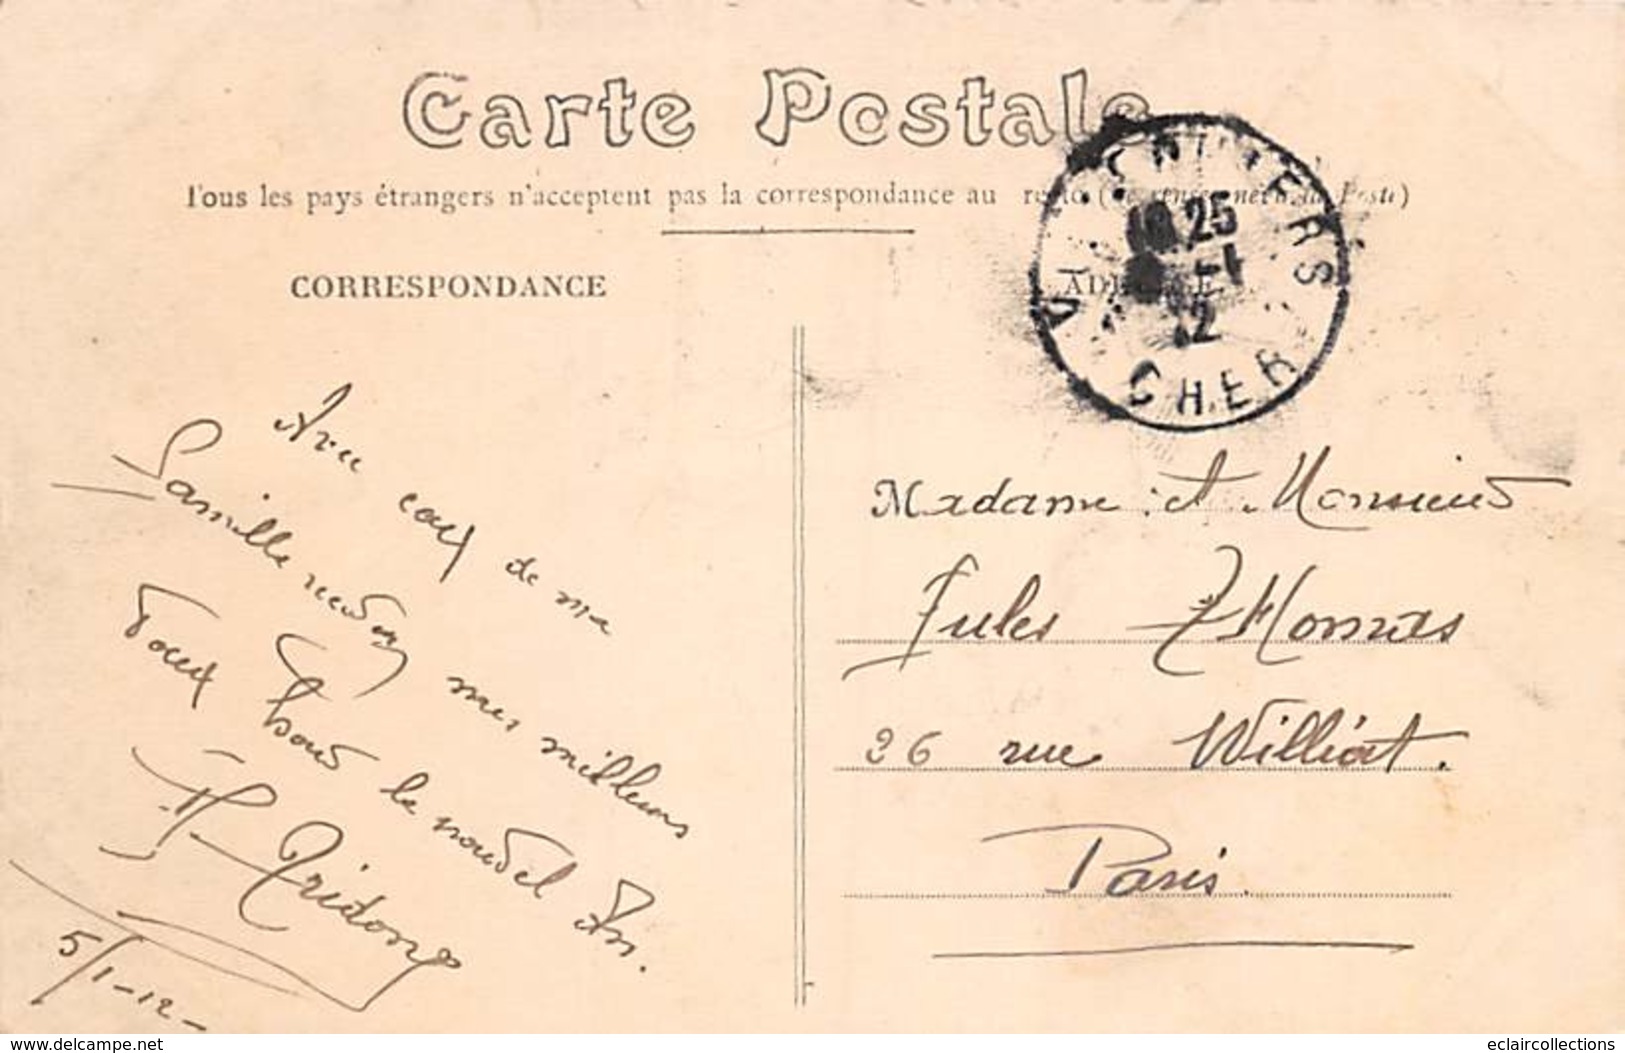 Carte Postale
Tous les pays étrangers n'acceptent pas la correspondance au recto (Se renseigner à la Poste)
CORRESPONDANCE
ADRESSE
10 25
-1
12
CHER
Avec ceux de ma
famille recevez mes meilleurs
vœux pour le nouvel An.
5/1-12-
Madame et Monsieur
Jules Thomas
26 rue Williot.
Paris.
delcampe.net
eclaircollections